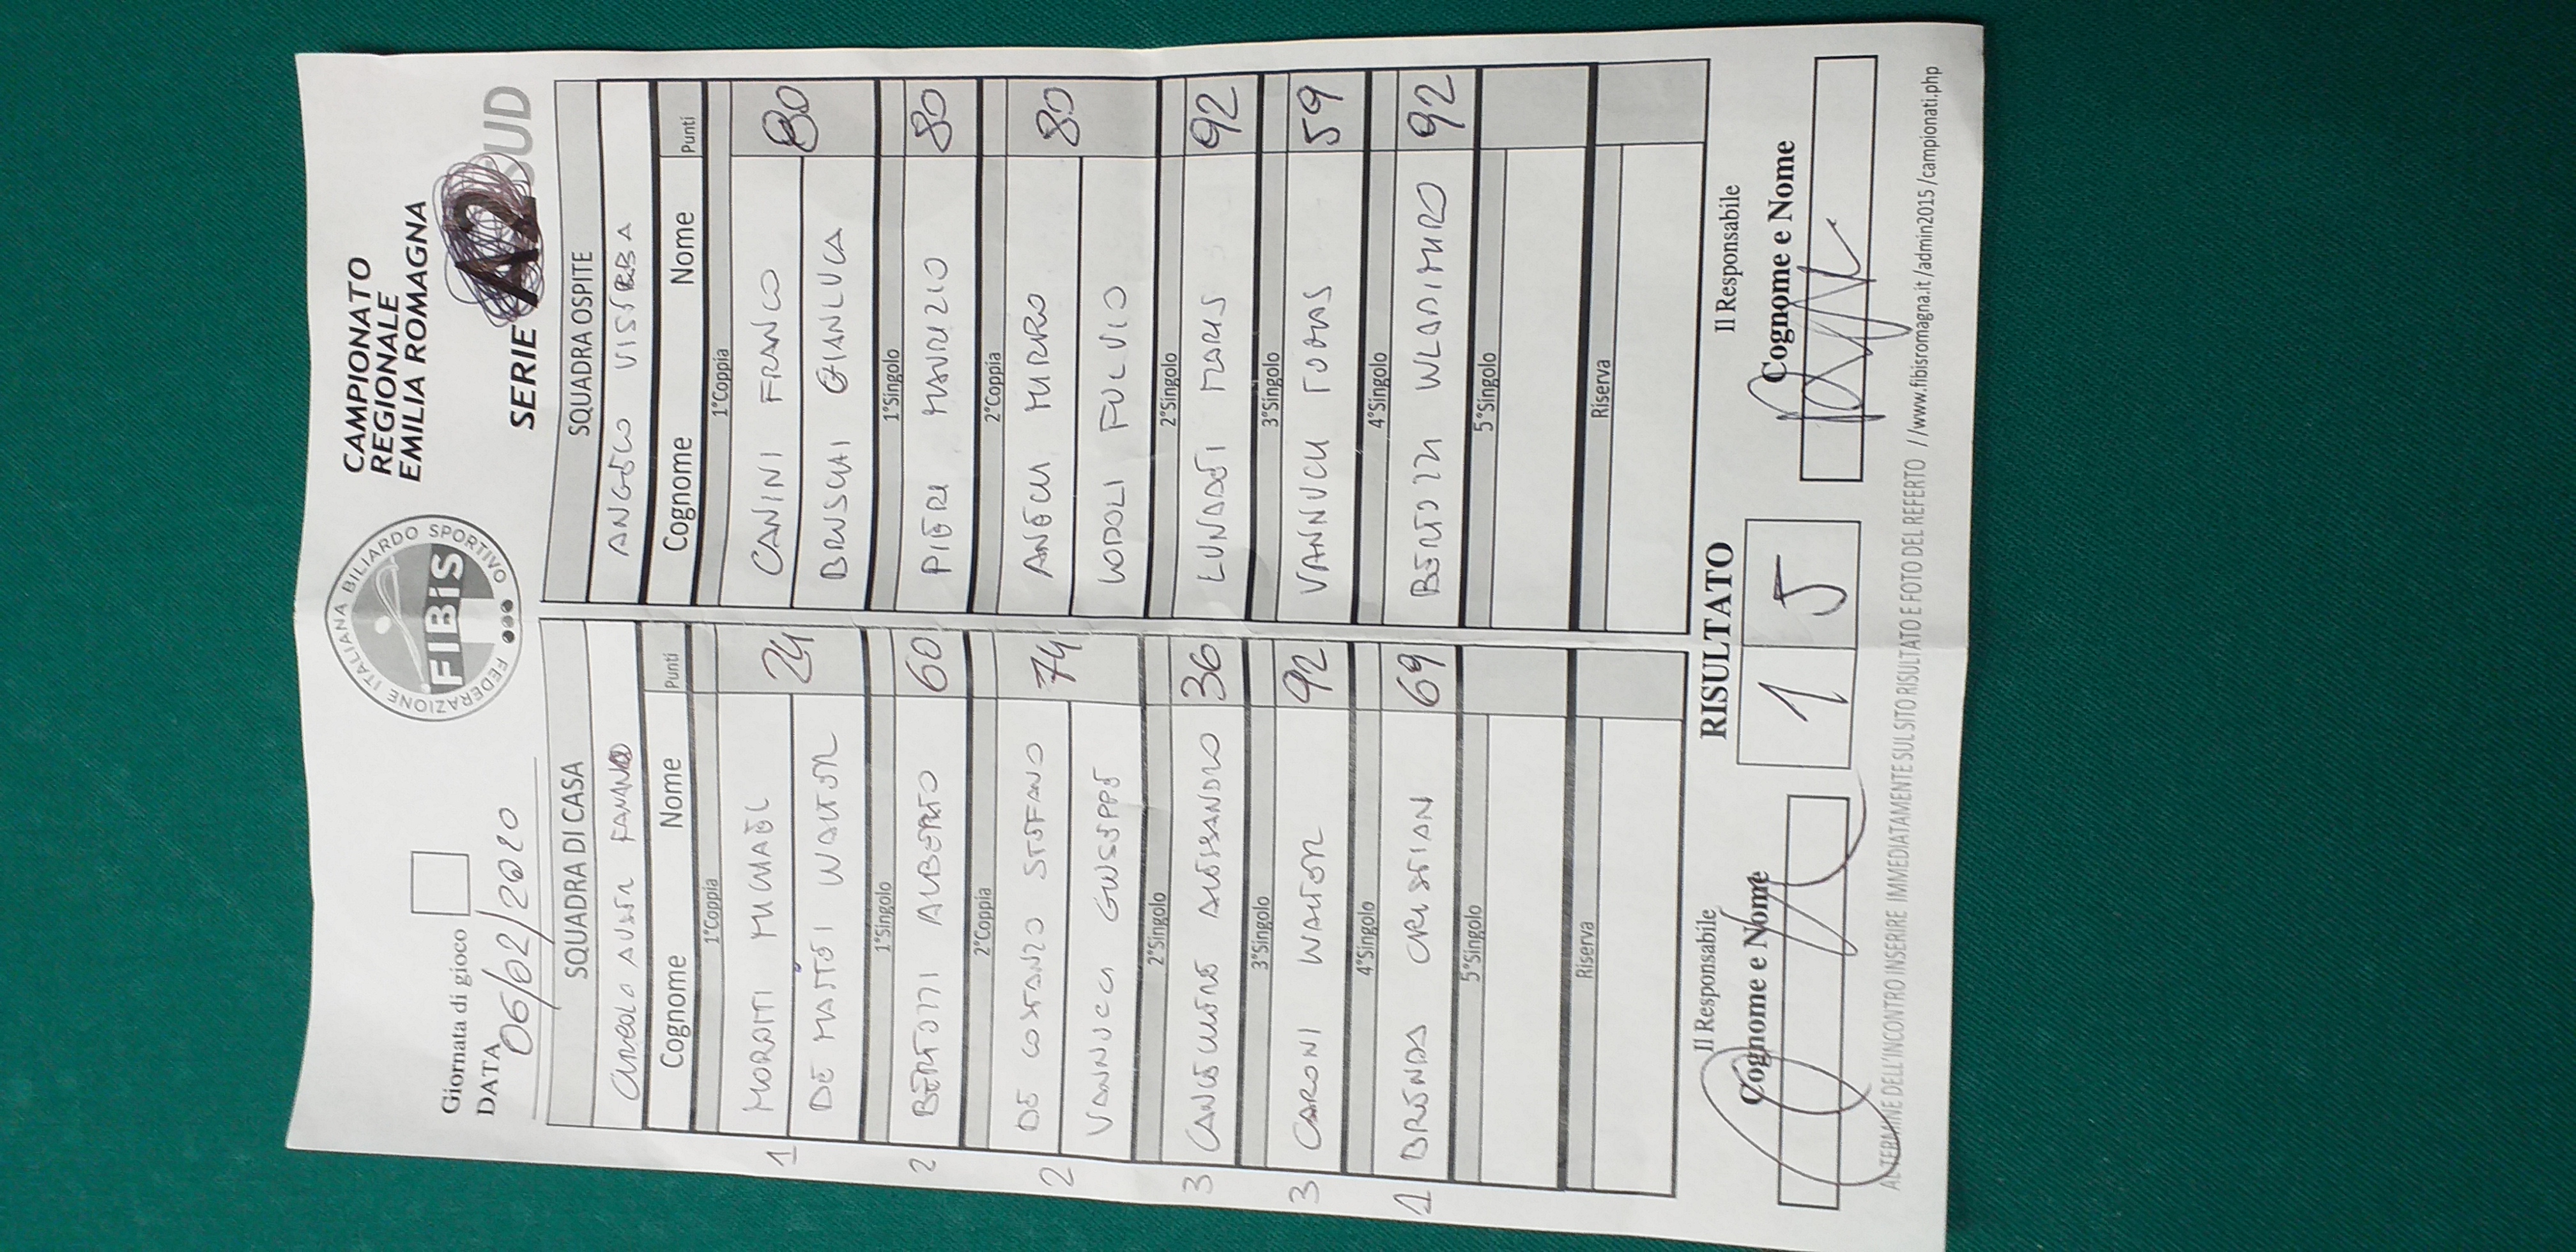 Giornata di gioco
DATA 06/02/2020
FEDERAZIONE ITALIANA BILIARDO SPORTIVO
FIBiS
CAMPIONATO
REGIONALE
EMILIA ROMAGNA
SERIE A2 SUD
SQUADRA DI CASA
FANANO
Cognome Nome Punti
1°Coppia
1 MORATTI MICHAEL 24
DE MATTEI WALTER
1°Singolo
2 BERTOZZI ALBERTO 60
2°Coppia
2 DE COSTANZO STEFANO 74
VANNUCCI GIUSEPPE
2°Singolo
3 ALESSANDRO 36
3°Singolo
3 CARONI WALTER 92
4°Singolo
1 BRENDA CRISTIAN 69
5°Singolo
Riserva
SQUADRA OSPITE
ANGOLO VISERBA
Cognome Nome Punti
1°Coppia
CANINI FRANCO 80
BRUSCHI GIANLUCA
1°Singolo
PIERI MAURIZIO 80
2°Coppia
MIRRO 80
LODOLI FULVIO
2°Singolo
LUNADEI 92
3°Singolo
VANNUCCI TOMAS 59
4°Singolo
BERTOZZI WLADIMIRO 92
5°Singolo
Riserva
Il Responsabile
Cognome e Nome
RISULTATO
1 5
Il Responsabile
Cognome e Nome
AL TERMINE DELL'INCONTRO INSERIRE IMMEDIATAMENTE SUL SITO RISULTATO E FOTO DEL REFERTO //www.fibisromagna.it /admin2015 /campionati.php